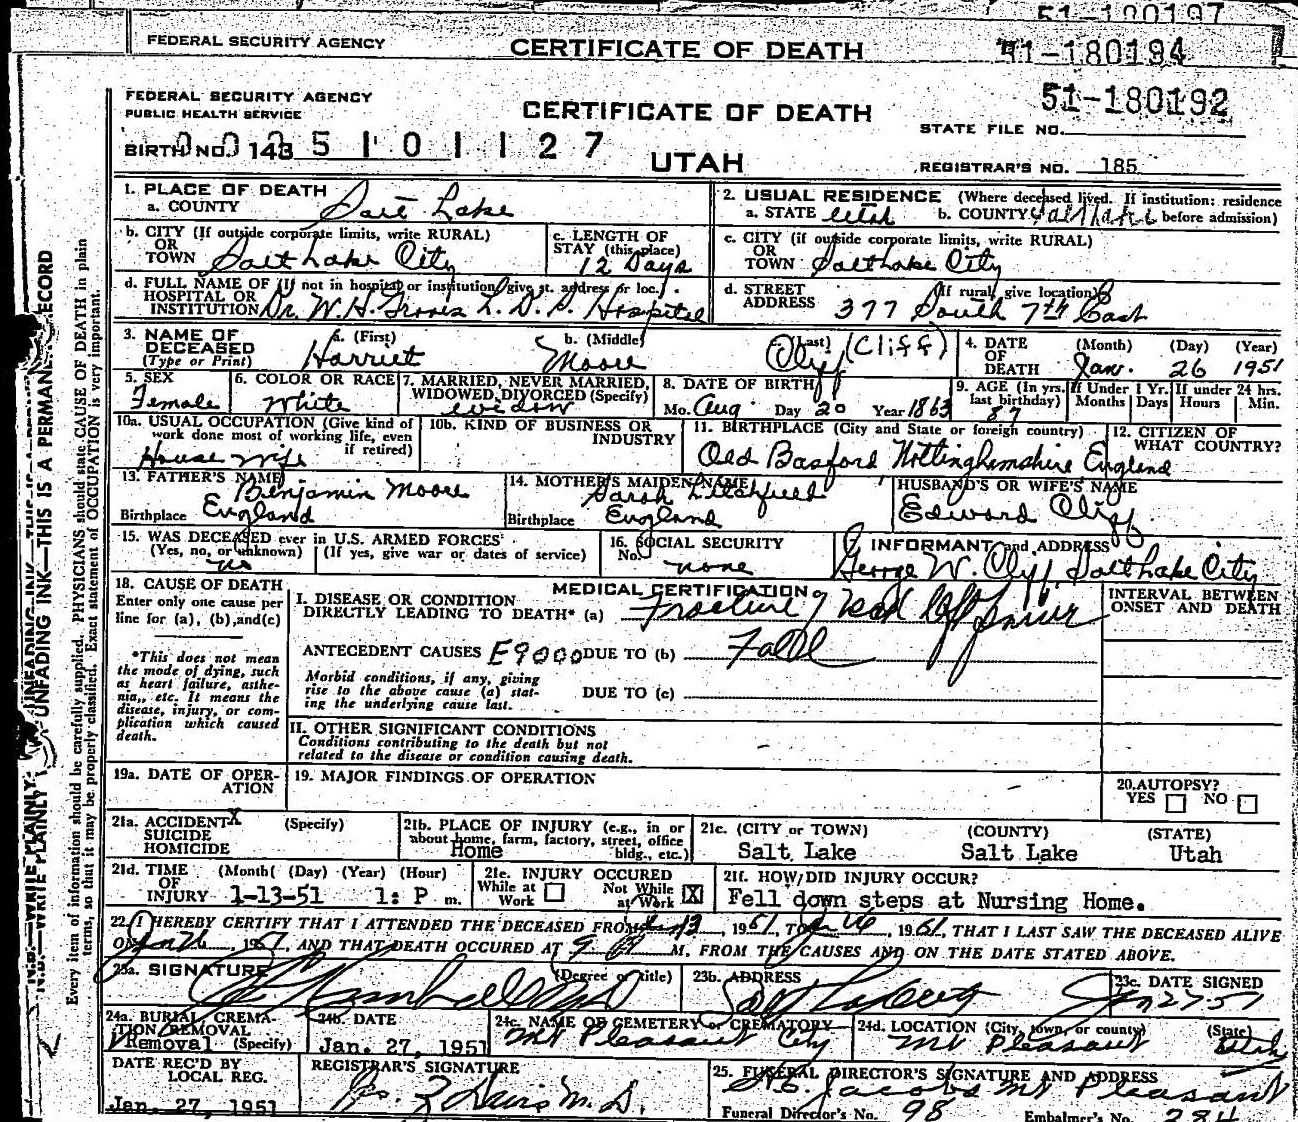 51-180197
FEDERAL SECURITY AGENCY CERTIFICATE OF DEATH 51-180194
FEDERAL SECURITY AGENCY
PUBLIC HEALTH SERVICE CERTIFICATE OF DEATH 51-180192
STATE FILE NO.
BIRTH NO. 143 5 1 0 1 1 2 7 UTAH REGISTRAR'S NO. 185
1. PLACE OF DEATH
a. COUNTY Salt Lake
2. USUAL RESIDENCE (Where deceased lived. If institution: residence
a. STATE Utah b. COUNTY Salt Lake before admission)
b. CITY (If outside corporate limits, write RURAL)
OR
TOWN Salt Lake City
c. LENGTH OF
STAY (this place)
12 Days
c. CITY (if outside corporate limits, write RURAL)
OR
TOWN Salt Lake City
d. FULL NAME OF (If not in hospital or institution, give st. address or loc.)
HOSPITAL OR
INSTITUTION Dr. W. H. Groves L. D. S. Hospital
d. STREET (If rural, give location)
ADDRESS 377 South 7th East
3. NAME OF
DECEASED
(Type or Print)
a. (First)
Harriet
b. (Middle)
Moore
(Last)
Cliff (Cliff)
4. DATE
OF
DEATH
(Month) (Day) (Year)
Jan. 26 1951
5. SEX
Female
6. COLOR OR RACE
White
7. MARRIED, NEVER MARRIED,
WIDOWED, DIVORCED (Specify)
widow
8. DATE OF BIRTH
Mo. Aug Day 20 Year 1863
9. AGE (In yrs.
last birthday)
87
If Under 1 Yr.
Months Days
If under 24 hrs.
Hours Min.
10a. USUAL OCCUPATION (Give kind of
work done most of working life, even
if retired)
House Wife
10b. KIND OF BUSINESS OR
INDUSTRY
11. BIRTHPLACE (City and State or foreign country)
Old Basford Nottinghamshire England
12. CITIZEN OF
WHAT COUNTRY?
13. FATHER'S NAME
Benjamin Moore
Birthplace England
14. MOTHER'S MAIDEN NAME
Sarah Litchfield
Birthplace England
HUSBAND'S OR WIFE'S NAME
Edward Cliff
15. WAS DECEASED ever in U.S. ARMED FORCES?
(Yes, no, or unknown) (If yes, give war or dates of service)
no
16. SOCIAL SECURITY
No. none
INFORMANT and ADDRESS
George W. Cliff, Salt Lake City
18. CAUSE OF DEATH
Enter only one cause per
line for (a), (b), and (c)
*This does not mean
the mode of dying, such
as heart failure, asthe-
nia, etc. It means the
disease, injury, or com-
plication which caused
death.
MEDICAL CERTIFICATION
I. DISEASE OR CONDITION
DIRECTLY LEADING TO DEATH* (a) Fracture of neck left femur
ANTECEDENT CAUSES E9000 DUE TO (b) Fall
Morbid conditions, if any, giving
rise to the above cause (a) stat-
ing the underlying cause last.
DUE TO (c)
INTERVAL BETWEEN
ONSET AND DEATH
II. OTHER SIGNIFICANT CONDITIONS
Conditions contributing to the death but not
related to the disease or condition causing death.
19a. DATE OF OPER-
ATION
19. MAJOR FINDINGS OF OPERATION
20. AUTOPSY?
YES NO
21a. ACCIDENT X (Specify)
SUICIDE
HOMICIDE
21b. PLACE OF INJURY (e.g., in or
about home, farm, factory, street, office
bldg., etc.)
Home
21c. (CITY or TOWN) (COUNTY) (STATE)
Salt Lake Salt Lake Utah
21d. TIME (Month) (Day) (Year) (Hour)
OF
INJURY 1-13-51 1: P m.
21e. INJURY OCCURED
While at Work Not While at Work X
21f. HOW DID INJURY OCCUR?
Fell down steps at Nursing Home.
22. I HEREBY CERTIFY THAT I ATTENDED THE DECEASED FROM 1951, TO 1951, THAT I LAST SAW THE DECEASED ALIVE
ON Jan 26, 1951, AND THAT DEATH OCCURED AT 9 P M. FROM THE CAUSES AND ON THE DATE STATED ABOVE.
23a. SIGNATURE (Degree or title)
MD
23b. ADDRESS
Salt Lake City
23c. DATE SIGNED
Jan 27-51
24a. BURIAL, CREMA-
TION, REMOVAL
Removal (Specify)
24b. DATE
Jan. 27, 1951
24c. NAME OF CEMETERY or CREMATORY
Mt Pleasant City
24d. LOCATION (City, town, or county) (State)
Mt Pleasant Utah
DATE REC'D BY
LOCAL REG.
Jan. 27, 1951
REGISTRAR'S SIGNATURE
M. D.
25. FUNERAL DIRECTOR'S SIGNATURE AND ADDRESS
Jacobs Mt Pleasant
Funeral Director's No. 98 Embalmer's No. 284
N.B.—WRITE PLAINLY UNFADING INK—THIS IS A PERMANENT RECORD
Every item of information should be carefully supplied. PHYSICIANS should state CAUSE OF DEATH in plain
terms, so that it may be properly classified. Exact statement of OCCUPATION is very important.